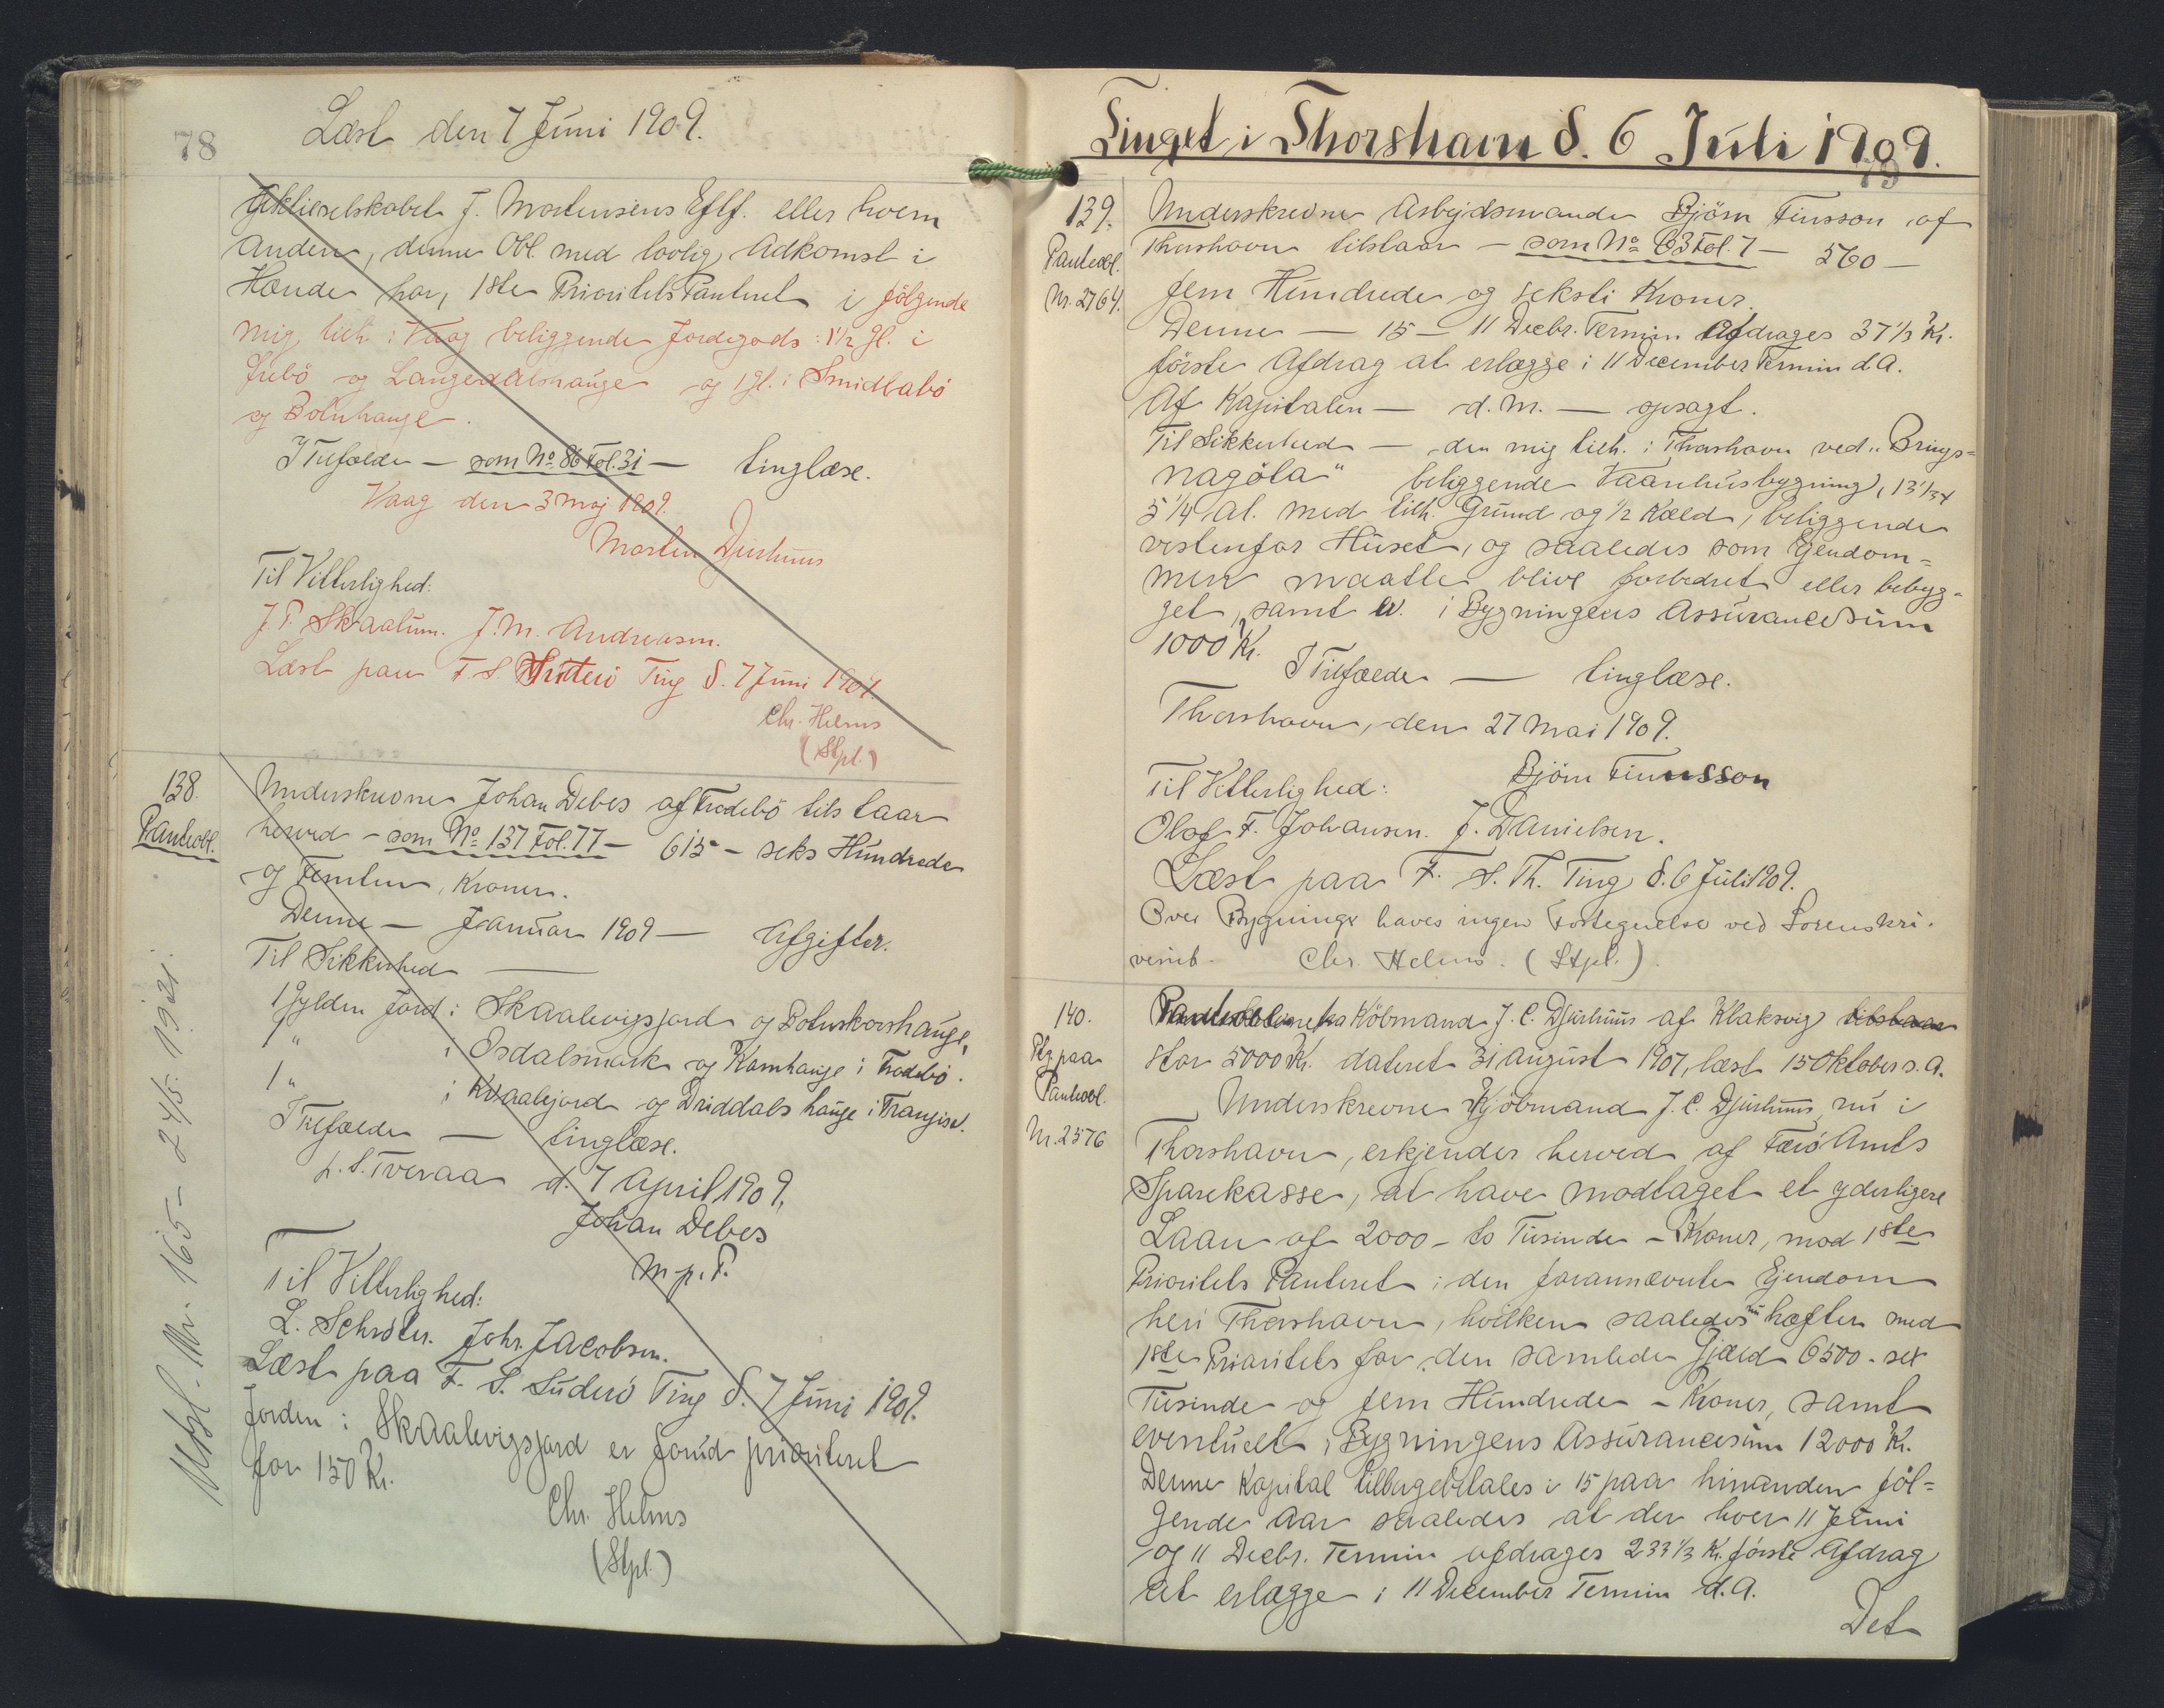 78
Læst den 7 Juni 1909.
Aktieselskabet J. Mortensens Eftf. eller hvem
anden, denne Obl. med lovlig Adkomst i
Hænde har, 1ste Prioritets Panteret i følgende
mig tilh. i Vaag beliggende Jordegods: 1 1/2 gl. i
og Langedalshauge og 1 gl. i Smidlabö
og Botnhauge.
I Tilfælde — som No 86 Fol. 31 — tinglæse.
Vaag den 3 Maj 1909.
Morten Djurhuus
Til Vitterlighed:
J. P. Skaalum. J. M. Andreasen.
Læst paa F. S. Suderö Ting d. 7 Juni 1909.
Chr. Helms
(Stpl.)
138.
Panteobl.
Underskrevne Johan Debes af Frodebö tilstaar
herved – som No 137 Fol. 77 – 615 – seks Hundrede
og Femten, Kroner.
Denne — Januar 1909 — Afgifter.
Til Sikkerhed —
1 Gylden Jord i Skaalevigsjord og Botnskorshauge,
1 " i Osdalsmark og Kamhauge i Frodebö.
1 " i Kvaalejord og Driddals hauge i Frangisv.
I Tilfælde — tinglæse.
p. t. Tveraa d. 7 April 1909,
Johan Debes
m. p. P.
Til Vitterlighed:
L. Schröter. Johs. Jacobsen.
Læst paa F. S. Suderö Ting d. 7 Juni 1909.
Jorden i Skaalevigsjord er forud prioriteret
for 150 Kr.
Chr. Helms
(Stpl.)
Udsl. Nr. 165 – 24/5 1921.
Tinget i Thorshavn d. 6 Juli 1909.
79
139.
Panteobl.
Nr. 2764.
Underskrevne Arbejdsmand Björn Finsson af
Thorshavn tilstaar — som No 63 Fol. 7 — 560 —
fem Hundrede og seksti Kroner.
Denne — 15 — 11 Decbr. Termin afdrages 37 1/3 Kr.
förste Afdrag at erlægge i 11 December Termin d. A.
Af Kapitalen — d. M. — opsagt.
Til Sikkerhed — den mig tilh. i Thorshavn ved „Brings=
nagöta" beliggende Vaanhusbygning, 13 1/3 x
5 1/4 Al. med tilh. Grund og 1/2 Kæld, beliggende
vestenfor Huset, og saaledes som Ejendom=
men maatte blive forbedret eller bebyg=
get, samt ev. i Bygningens Assurancesum
1000 Kr.
I Tilfælde — tinglæse.
Thorshavn, den 27 Mai 1909.
Björn Finnsson
Til Vitterlighed:
Olof F. Johansen. J. Danielsen.
Læst paa F. S. Th. Ting d. 6 Juli 1909.
Over Bygninge haves ingen Fortegnelse ved Sorenskri-
verieb. Chr. Helms. (Stpl.)
140.
Ptg. paa
Panteobl.
Nr. 2576
Panteobl. fra Köbmand J. C. Djurhuus af Klaksvig tilstaar
stor 5000 Kr. dateret 31 August 1907, læst 15 Oktober s. A.
Underskrevne Kjöbmand J. C. Djurhuus, nu i
Thorshavn, erkjender herved af Færö Amts
Sparekasse, at have modtaget et yderligere
Laan af 2000 – to Tusinde – Kroner, mod 1ste
Prioritets Panteret i den forannævnte Ejendom
heri Thorshavn, hvilken saaledes nu hæfter med
1ste Prioritets for den samlede Gjæld 6500 – sex
Tusinde og fem Hundrede – Kroner, samt
eventuelt i Bygningens Assurancesum 12000 Kr.
Denne Kapital tilbagebetales i 15 paa hinanden föl=
gende Aar saaledes at der hver 11 Juni
og 11 Decbr. Termin afdrages 233 1/3 Kr. förste Afdrag
at erlægge i 11 December Termin d. A.
Det